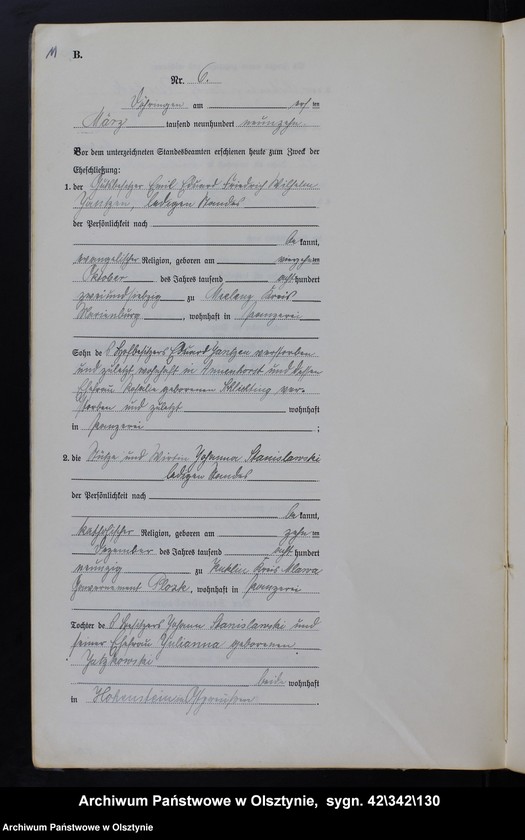 M
B.
Nr. 6.
Döhringen am elf ten
März tausend neunhundert neunzehn.
Vor dem unterzeichneten Standesbeamten erschienen heute zum Zweck der
Eheschließung:
1. der Gutsbesitzer Emil Eduard Friedrich Wilhelm
Jantzen, ledigen Standes
der Persönlichkeit nach
be kannt,
evangelischer Religion, geboren am vierzehn ten
Oktober des Jahres tausend acht hundert
zweiundsiebzig zu Kreis
Marienburg, wohnhaft in
Sohn des Hofbesitzers Eduard Jantzen verstorben
und zuletzt wohnhaft in und dessen
Ehefrau Rosalie geborenen Schlichting ver-
storben und zuletzt wohnhaft
in ;
2. die Stütze und Wirtin Johanna Stanislawski
ledigen Standes
der Persönlichkeit nach
be kannt,
katholischer Religion, geboren am zehn ten
Dezember des Jahres tausend acht hundert
neunzig zu Kuklin Kreis Mlawa
Gouvernement Plozk, wohnhaft in
Tochter des Besitzers Johann Stanislawski und
seiner Ehefrau Julianna geborenen
beide wohnhaft
in Hohenstein in Ostpreußen.
Archiwum Państwowe w Olsztynie, sygn. 42\342\130
Archiwum Państwowe w Olsztynie